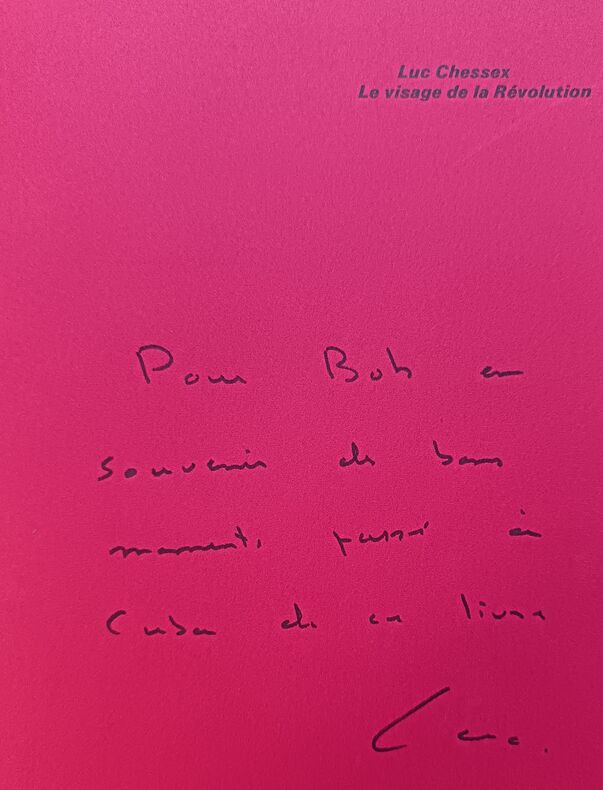 Luc Chessex
Le visage de la Révolution
Pour Bob en
souvenir de bons
moments passé à
Cuba de ce livre
Luc.